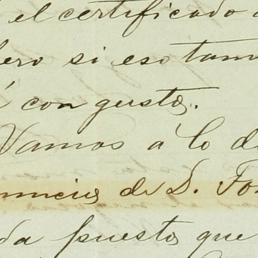 el certificado
pero si eso tam
con gusto.
Vamos á lo d
nuncia de D. Fo
da puesto que